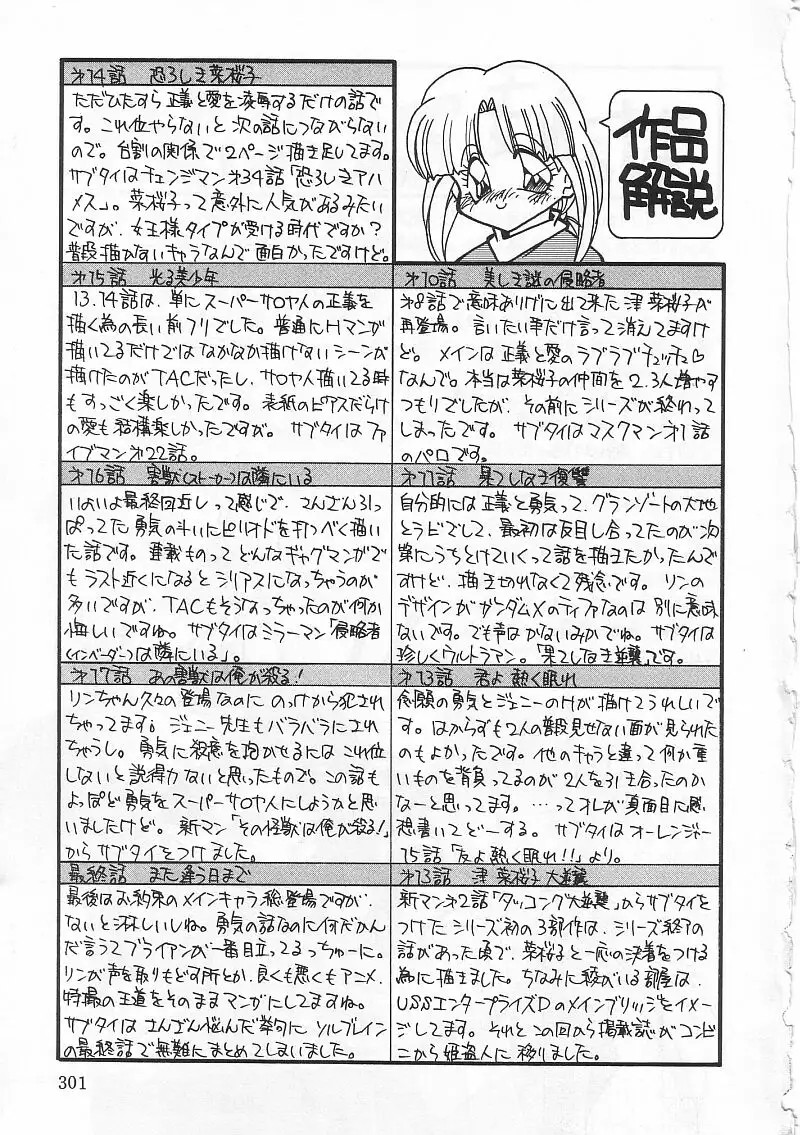 作品
解説
才10話 美しき謎の侵略者
才8話で意味ありげに出て来た津菜桜子が
再登場。言いたい事だけ言って消えてますけ
ど。メインは正義と愛のラブラブチュッチュ♡
なんで。本当は菜桜子の仲間を2.3人増やす
つもりでしたが、その前にシリーズが終わって
しまったです。サブタイはマスクマン才1話
のパロです。
才11話 果てしなき復讐
自分的には正義と勇気って、グランゾートの大地
とラビでして、最初は反目し合ってたのが次
第にうちとけていくって話を描きたかったんで
すけど、描き切れなくて残念です。リンの
デザインがガンダムXのティファなのは別に意味
ないです。でも声はかないみかでね。サブタイは
珍しくウルトラマン。「果てしなき逆襲」です。
才13話 君よ熱く眠れ
念願の勇気とジェニーのHが描けてうれしいで
す。はからずも2人の普段見せない面が見られた
のもよかったです。他のキャラと違って何か重
いものを背負ってるのが2人を引き合ったのか
なーと思ってます。…ってオレが真面目に感
想書いてどーする。サブタイはオーレンジャー
15話「友よ熱く眠れ!!」より。
才13話 津 菜桜子 大逆襲
新マン才2話「タッコング大逆襲」からサブタイを
つけたシリーズ初の3部作は、シリーズ終了の
話があった頃で、菜桜子と一応の決着をつける
為に描きました。ちなみに殺がいる部屋は、
USSエンタープライズDのメインブリッジをイメー
ジしてます。それとこの回から掲載誌がコンビ
ニから姫盗人に移りました。
才14話 恐ろしき菜桜子
ただひたすら正義と愛を凌辱するだけの話で
す。これ位やらないと次の話につながらない
ので。台割の関係で2ページ描き足してます。
サブタイはチェンジマン才34話「恐ろしきアハ
メス」。菜桜子って意外に人気があるみたい
ですが、女王様タイプが受ける時代ですか?
普段描かないキャラなんで面白かったですけど。
才15話 光る美少年
13.14話は、単にスーパーサロヤ人の正義を
描く為の長い前フリでした。普通にHマンが
描いてるだけではなかなか描けないシーンが
描けたのがTACだったし、サロヤ人描いてる時
もすっごく楽しかったです。表紙のピアスだらけ
の愛も結構楽しかったですが。サブタイはファ
イブマン才22話。
才16話 害獣(ストーカー)は隣にいる
いよいよ最終回近しって感じで、さんざん引っ
ぱってた勇気の斗いにピリオドを打つべく描い
た話です。連載ものってどんなギャグマンガで
もラスト近くになるとシリアスになっちゃうのが
多いですが、TACもそうなっちゃったのが何か
悔しいですね。サブタイはミラーマン「侵略者
(インベーダー)は隣にいる」。
才17話 あの害獣は俺が殺る!
リンちゃん久々の登場なのに のっけから犯され
ちゃってます。ジェニー先生もバラバラにされ
ちゃうし。勇気に殺意を抱かせるにはこれ位
しないと説得力ないと思ったもので。この話も
よっぽど勇気をスーパーサロヤ人にしようかと思
いましたけど。新マン「その怪獣は俺が殺る!」
からサブタイをつけました。
最終話 また逢う日まで
最後はお約束のメインキャラ総登場ですが、
ないと淋しいしね。勇気の話なのに何だかん
だ言うてブライアンが一番目立ってるっちゅーに。
リンが声を取りもどす所とか、良くも悪くもアニメ、
特撮の王道をそのままマンガにしてますね。
サブタイはさんざん悩んだ挙句にソルブレイン
の最終話で無難にまとめてしまいました。
301